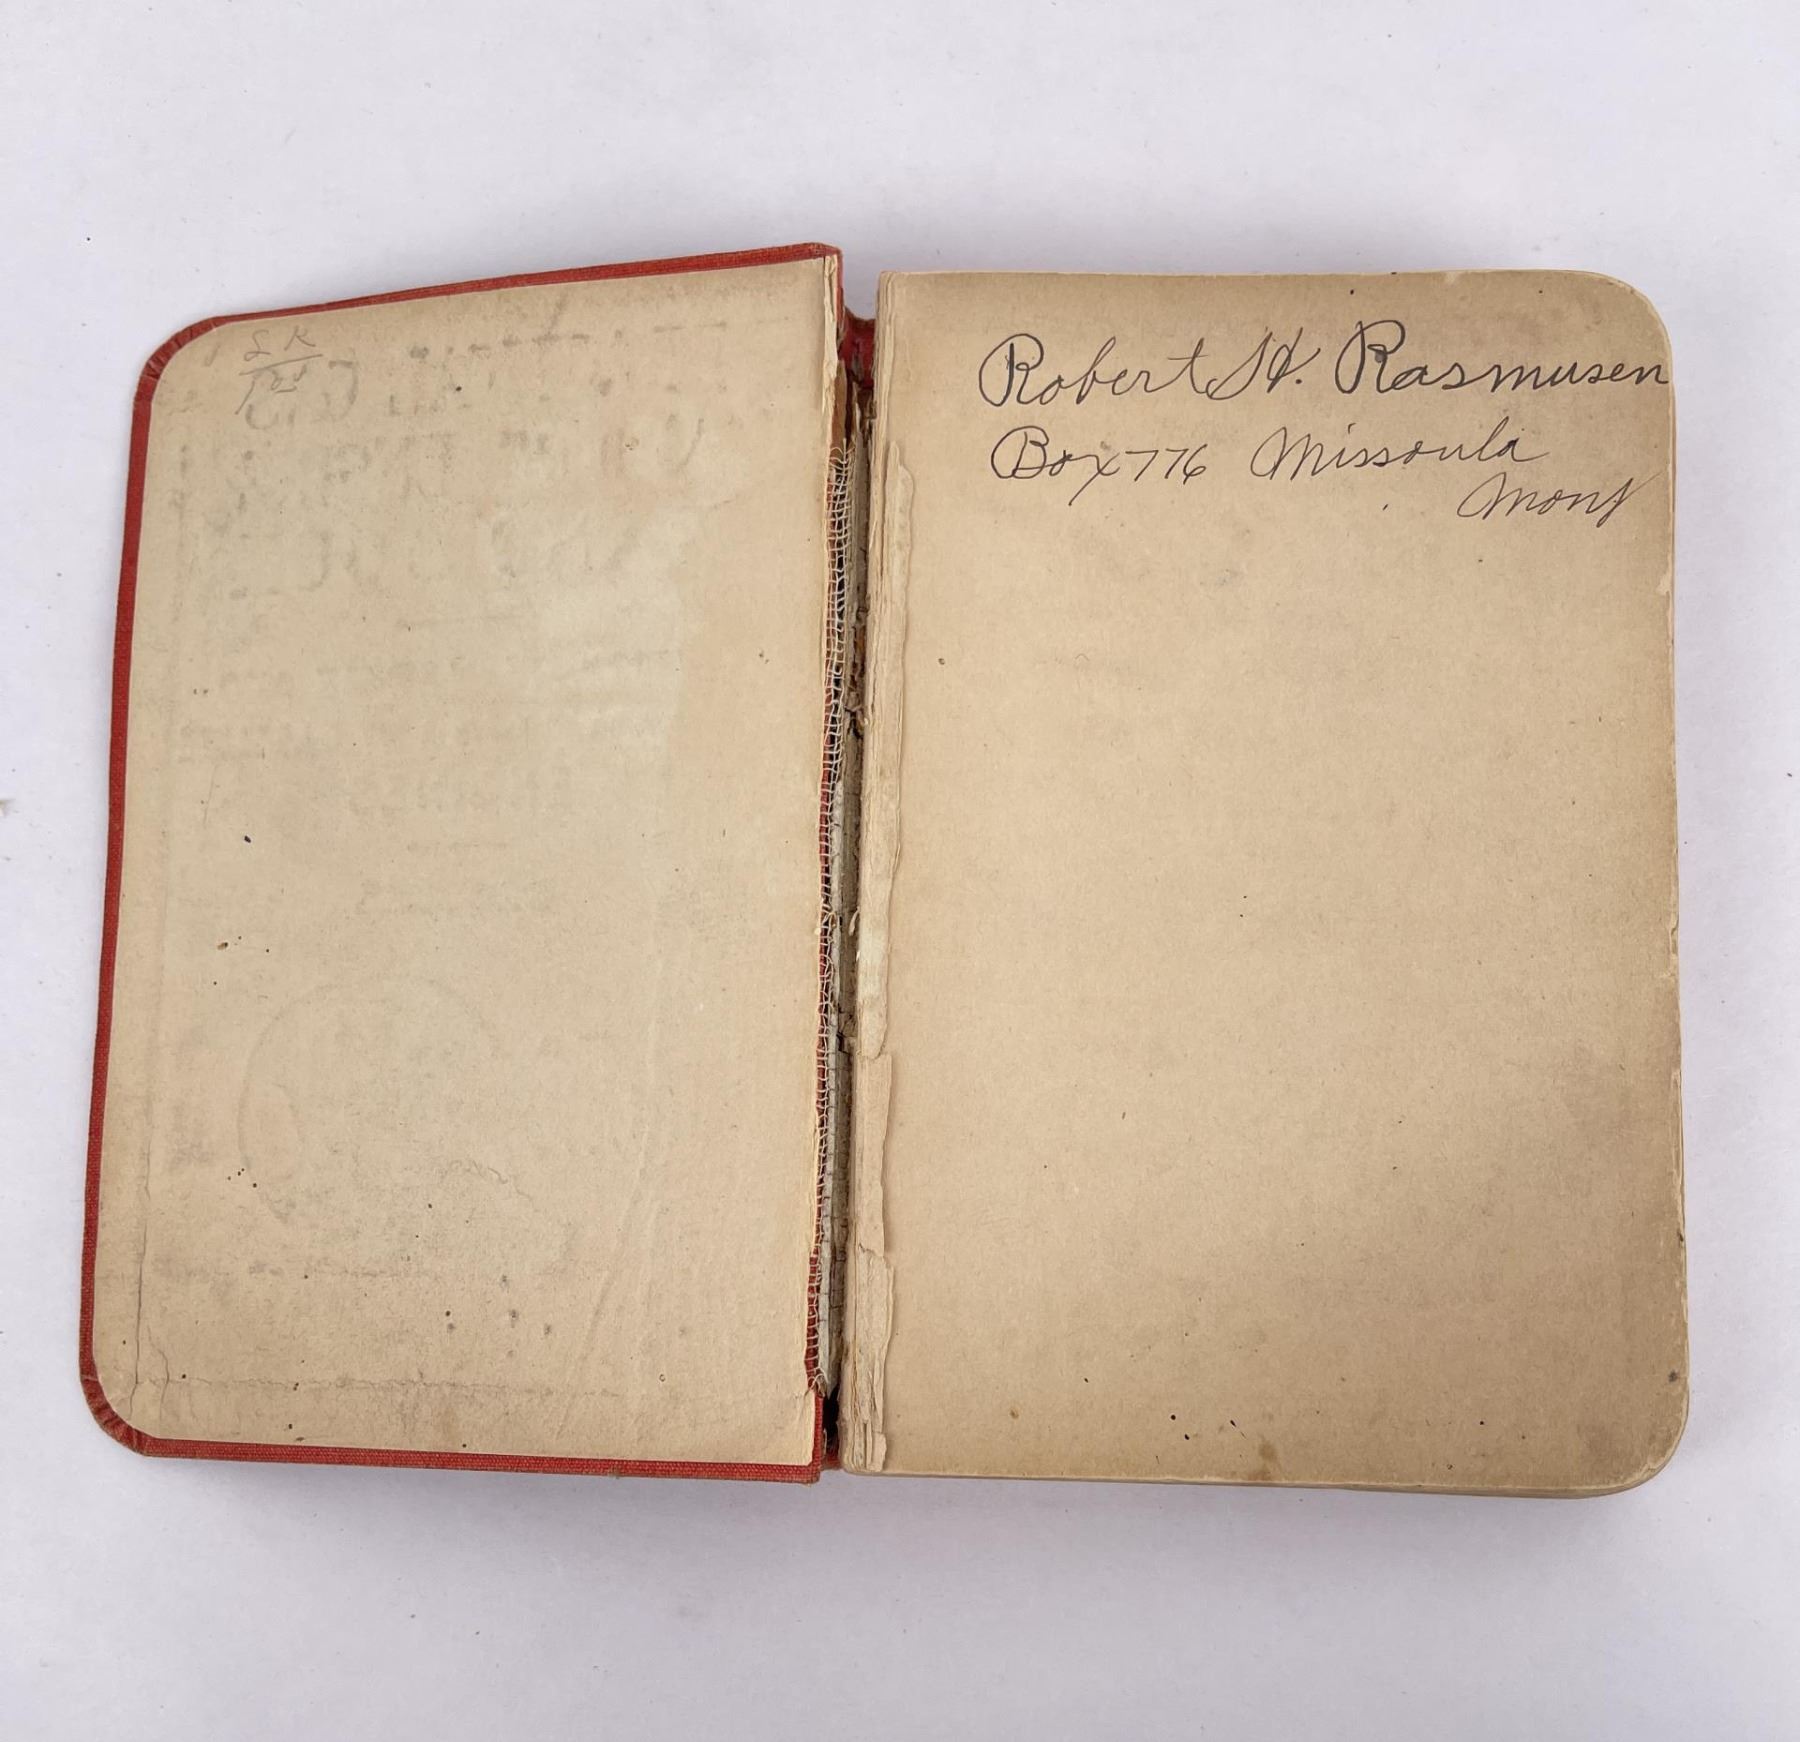 Robert H. Rasmusen
Box 776 Missoula
Mont